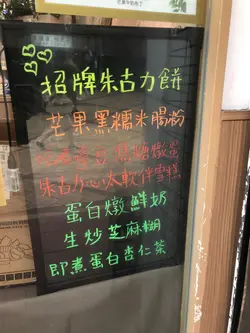 招牌朱古力餅
芒果黑糯米腸粉
焦糖燉蛋
朱古力心太軟伴雪糕
蛋白燉鮮奶
生炒芝麻糊
即煮蛋白杏仁茶